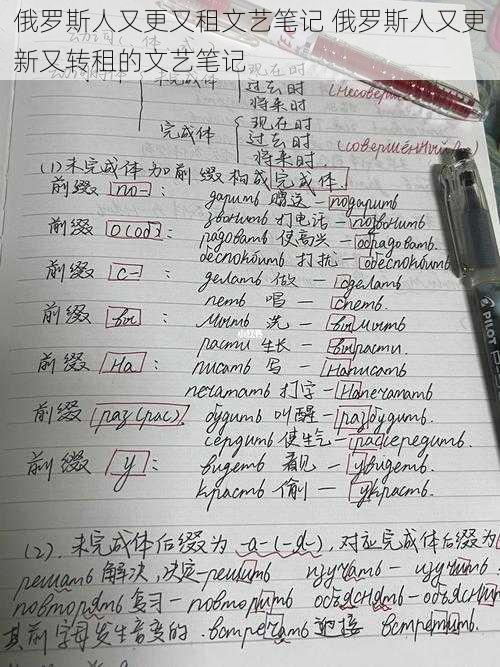 俄罗斯人又更又租文艺笔记 俄罗斯人又更
新又转租的文艺笔记
现在时
过去时
将来时
完成体
现在时
过去时
将来时
(1)未完成体加前缀构成完成体.
前缀 по-: дарить 赠送 — подарить
звонить 打电话 — позвонить
前缀 о(об): радовать 使高兴 — обрадовать.
беспокоить 打扰 — обеспокоить
前缀 с-: делать 做 — сделать
петь 唱 — спеть.
前缀 вы: мыть 洗 — вымыть
расти 生长 — вырасти.
前缀 на: писать 写 — написать
печатать 打字 — напечатать
前缀 раз(рас). будить 叫醒 — разбудить.
сердить 使生气 —
前缀 у: видеть 看见 — увидеть.
красть 偷 — украсть.
(2). 未完成体后缀为 -а-(-я-), 对应完成体后缀为
решать 解决,决定 — решить изучать — изучить.
повторять 复习 — повторить объяснять — объяснить
其前字母发生音变的. встречать 迎接 встретить.